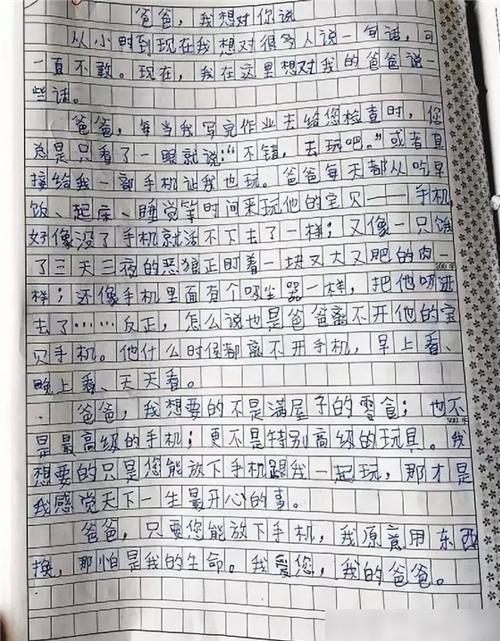 爸爸，我想对你说
从小时到现在我想对很多人说一句话，可
一直不敢。现在，我在这里想对我的爸爸说
些话。
爸爸，每当我写完作业去给您检查时，您
总是只看了一眼就说：“不错，去玩吧。”或者直
接给我一部手机让我也玩。爸爸每天都从吃早
饭、起床、睡觉等时间来玩他的宝贝——手机
好像没了手机就活不下去了一样；又像一只饿
了三天三夜的恶狼正盯着一块又大又肥的肉一
样；还像手机里面有个吸尘器一样，把他吸进
去了……反正，怎么说也是爸爸离不开他的宝
贝手机。他什么时候都离不开手机，早上看、
晚上看、天天看。
爸爸，我想要的不是满屋子的零食；也不
是最高级的手机；更不是特别高级的玩具。我
想要的只是您能放下手机跟我一起玩，那才是
我感觉天下一生最开心的事。
爸爸，只要您能放下手机，我原意用东西
换，那怕是我的生命。我爱您，我的爸爸。